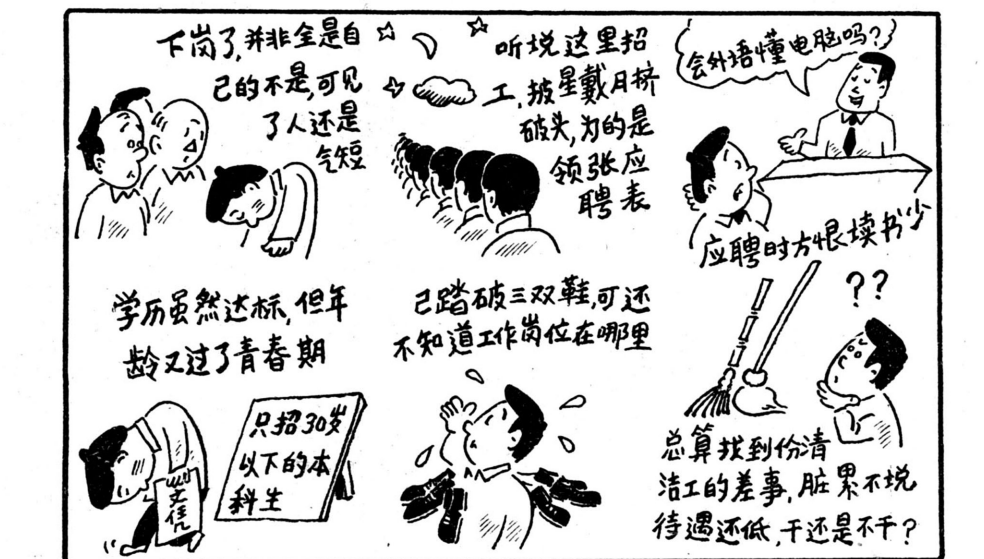 下岗了,并非全是自
己的不是,可见
了人还是
气短
听说这里招
工,披星戴月挤
破头,为的是
领张应
聘表
会外语懂电脑吗?
应聘时方恨读书少
学历虽然达标,但年
龄又过了青春期
文凭
只招30岁
以下的本
科生
已踏破三双鞋,可还
不知道工作岗位在哪里
??
总算找到份清
洁工的差事,脏累不说
待遇还低,干还是不干?